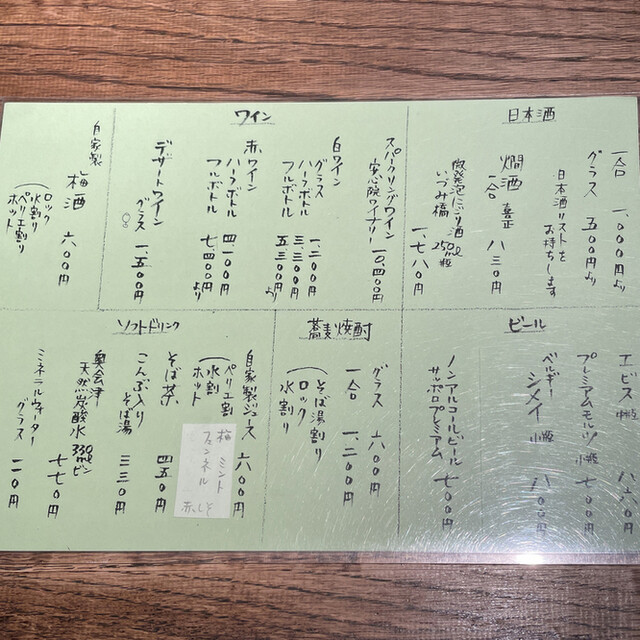 日本酒
一合 一、〇〇〇円より
グラス 五〇〇円より
日本酒リストを
お持ちします
燗酒 喜正
一合 八三〇円
微発泡にごり酒
いづみ橋 250ml瓶
一、七八〇円
ワイン
スパークリングワイン
安心院ワイナリー 一〇、四〇〇円
白ワイン
グラス 一、二〇〇円
ハーフボトル 三、三〇〇円
フルボトル 五、三〇〇円より
赤ワイン
ハーフボトル 四、一〇〇円
フルボトル 七、四〇〇円より
デザートワイン
グラス 一、五〇〇円
自家製
梅酒 六〇〇円
(ロック
水割り
ペリエ割り
ホット
ビール
エビス 中瓶 八六〇円
プレミアムモルツ 小瓶 七〇〇円
ベルギー
シメイ 小瓶 八〇〇円
ノンアルコールビール
サッポロプレミアム 七〇〇円
蕎麦焼酎
グラス 六〇〇円
一合 一、二〇〇円
(そば湯割り
ロック
水割り
ソフトドリンク
自家製ジュース 六〇〇円
(ペリエ割
水割
ホット
梅 ミント
フェンネル 赤しそ
そば茶 四五〇円
こんぶ入り
そば湯 三三〇円
奥会津
天然炭酸水 330mlビン
七七〇円
ミネラルウォーター
グラス 一一〇円